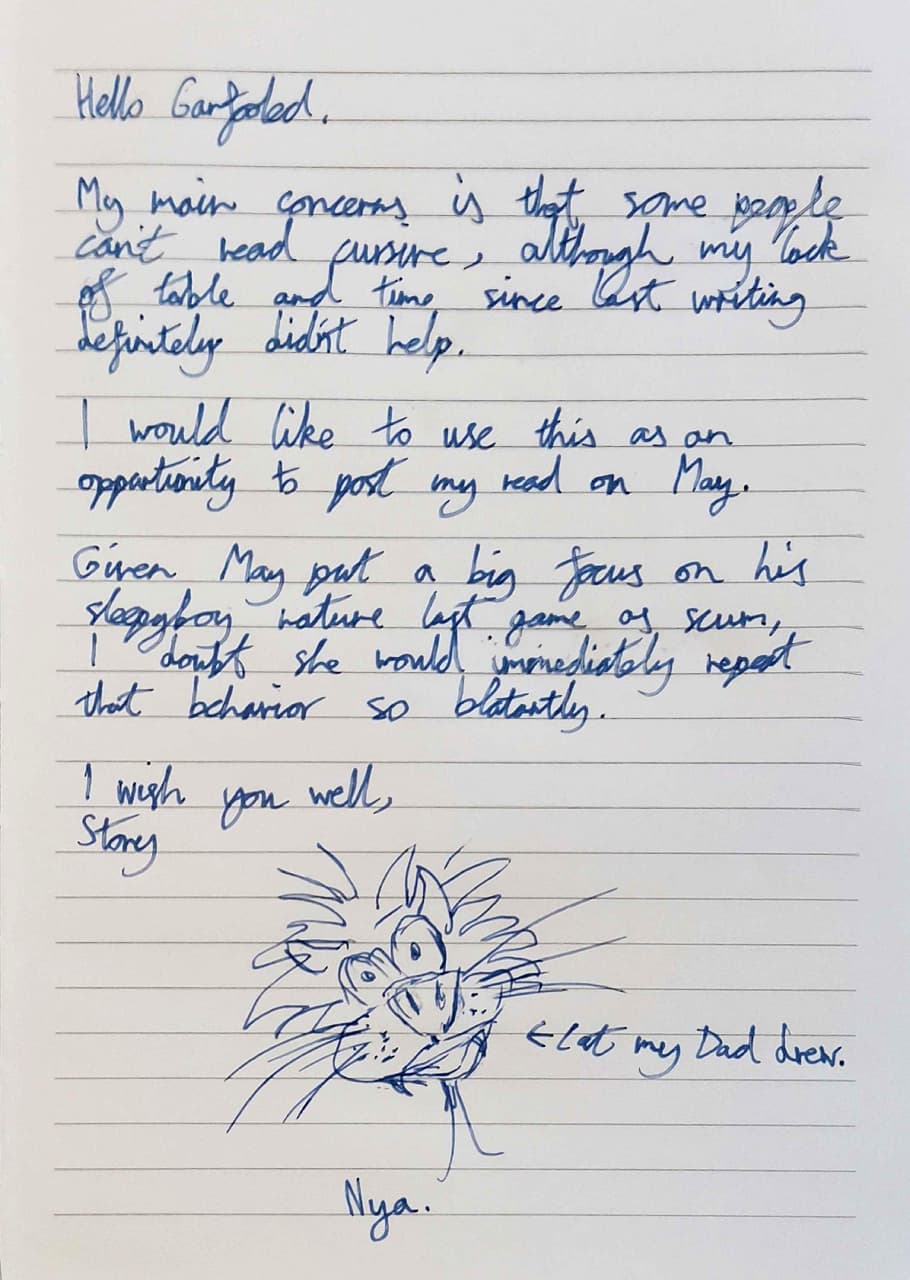 Hello Garfooled.
My main concerns is that some people
can't read cursive, although my lack
of table and time since last writing
definitely didn't help.
I would like to use this as an
opportunity to post my read on May.
Given May put a big focus on his
sleepyboy nature last game as scum,
I doubt she would immediately repeat
that behavior so blatantly.
I wish you well,
Story
← Cat my Dad drew.
Nya.